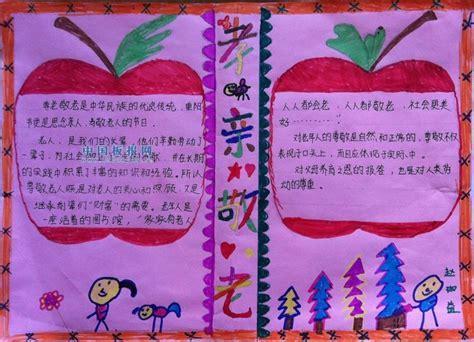 孝亲敬老
尊老敬老是中华民族的优良传统，重阳
节使是思念亲人，孝敬老人的节日，
老人，是我们的长辈，他们辛勤劳动了
一辈子，为社会
，并在长期
的实践中积累了丰富的知识和经验。所以
尊敬老人既是对老人的关心和照顾，又是
继承前辈们“财富”的需要。老年人是
一座活着的图书馆，“家家有老人
中国板报网
人人都会老，人人都敬老，社会更美
好……
对老年人的尊敬是自然和正常的，尊敬不仅
表现于口头上，而且应体现于实际中。
对父母养育之恩的报答，也是对人类劳
动的尊重。
赵